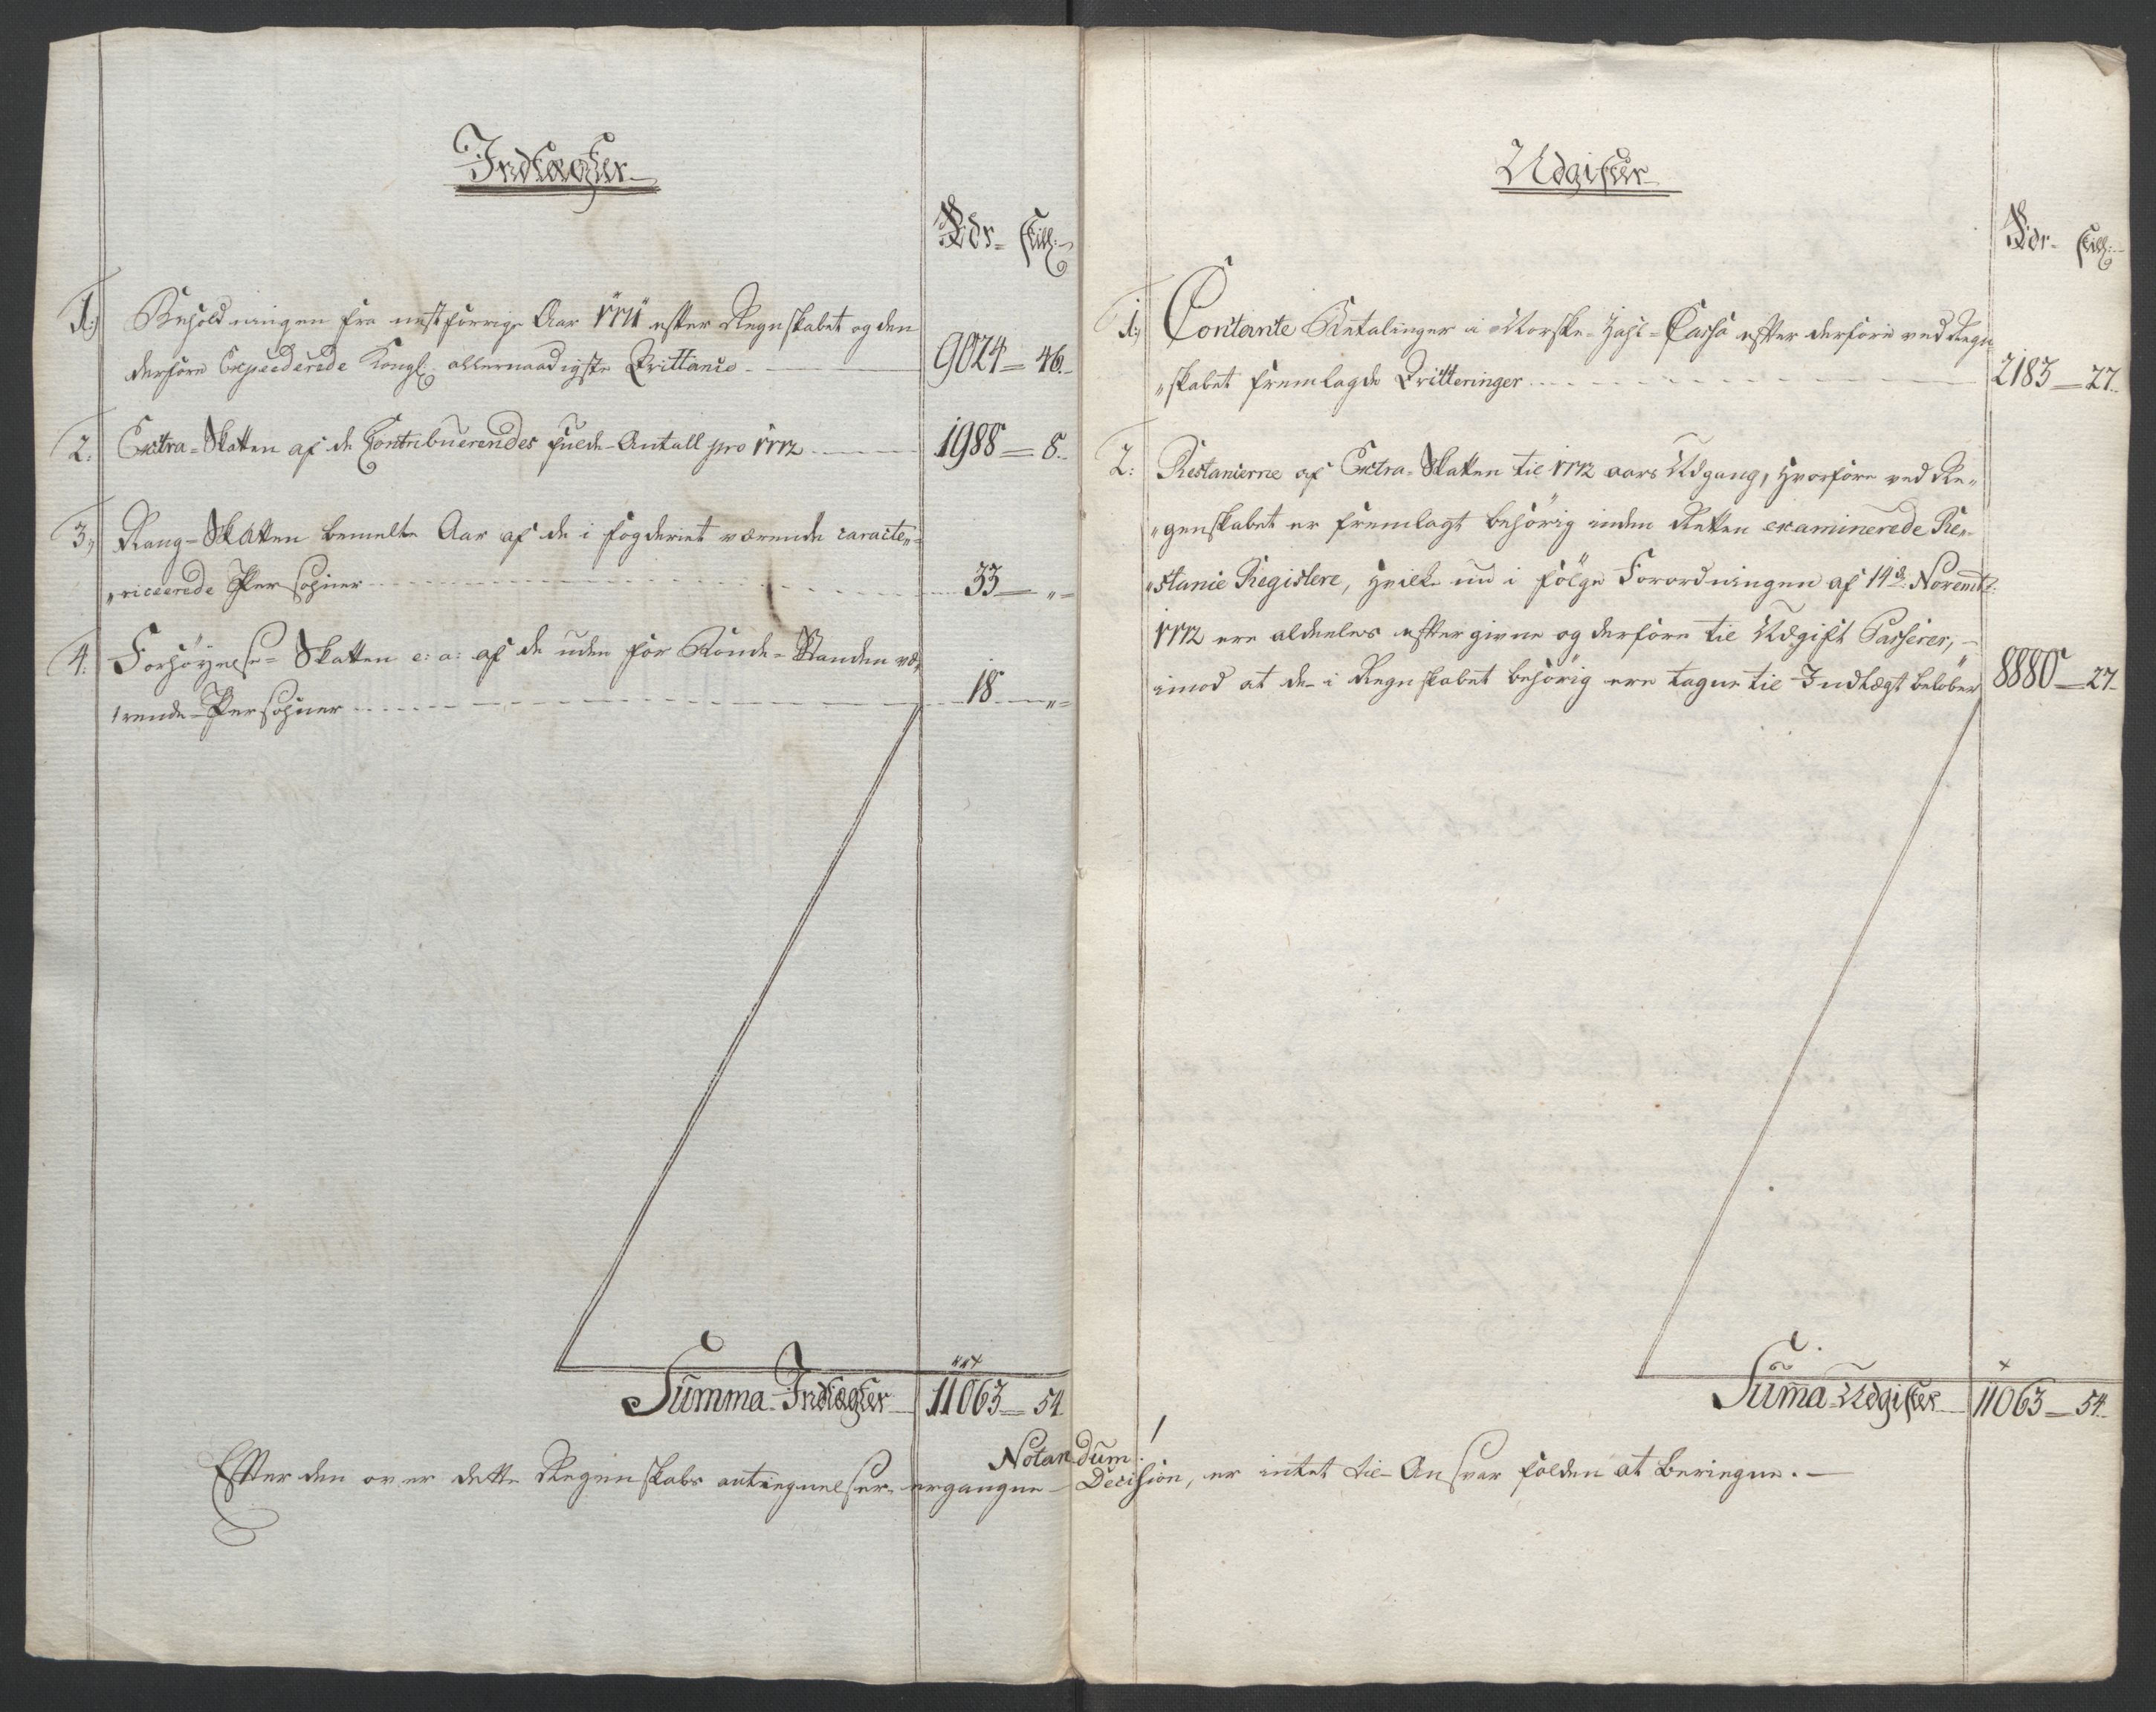 Indtægter
Rdr. Skill:
1.) Beholdningen fra nestforrige Aar 1771 efter Regnskabet og den
derfore Expeederede Kongl. allernaadigste Qvittancio 9024 = 46.
2. Extra-Skatten af de Contribuerendes fulde Antall pro 1772 1988 = 8.
3.) Rang-Skatten bemelte Aar af de i fogderiet værende caracte„
„riceerede Persohner 33 — „
4. Forhöyelse-Skatten e: a: af de uden for Bonde-Standen væ„
„rende Persohner 18 — „
Summa Indtægter 11063 — 54
Udgifter
Rdr. Skill:
1.) Contante Betalinger i Norske Zahl-Cassa efter derfore ved Regn„
„skabet fremlagde Qvitteringer 2183 — 27.
2: Restancerne af Extra-Skatten til 1772 aars Udgang, hvorfore ved Re„
„genskabet er fremlagt behörig inden Retten examinerede Re„
„stancie Registere, hvilke nu i fölge Forordningen af 14de Novembr:
1772 ere aldeeles efftergivne og derfore til Udgift Passerer,
imod at de i Regnskabet behörig ere tagne til Indtægt belöber 8880 — 27.
Summa Udgifter 11063 — 54.
Notandum!
Efter den over dette Regenskabs antegnelser ergangne Decision, er intet til Ansvar falden at beregne.